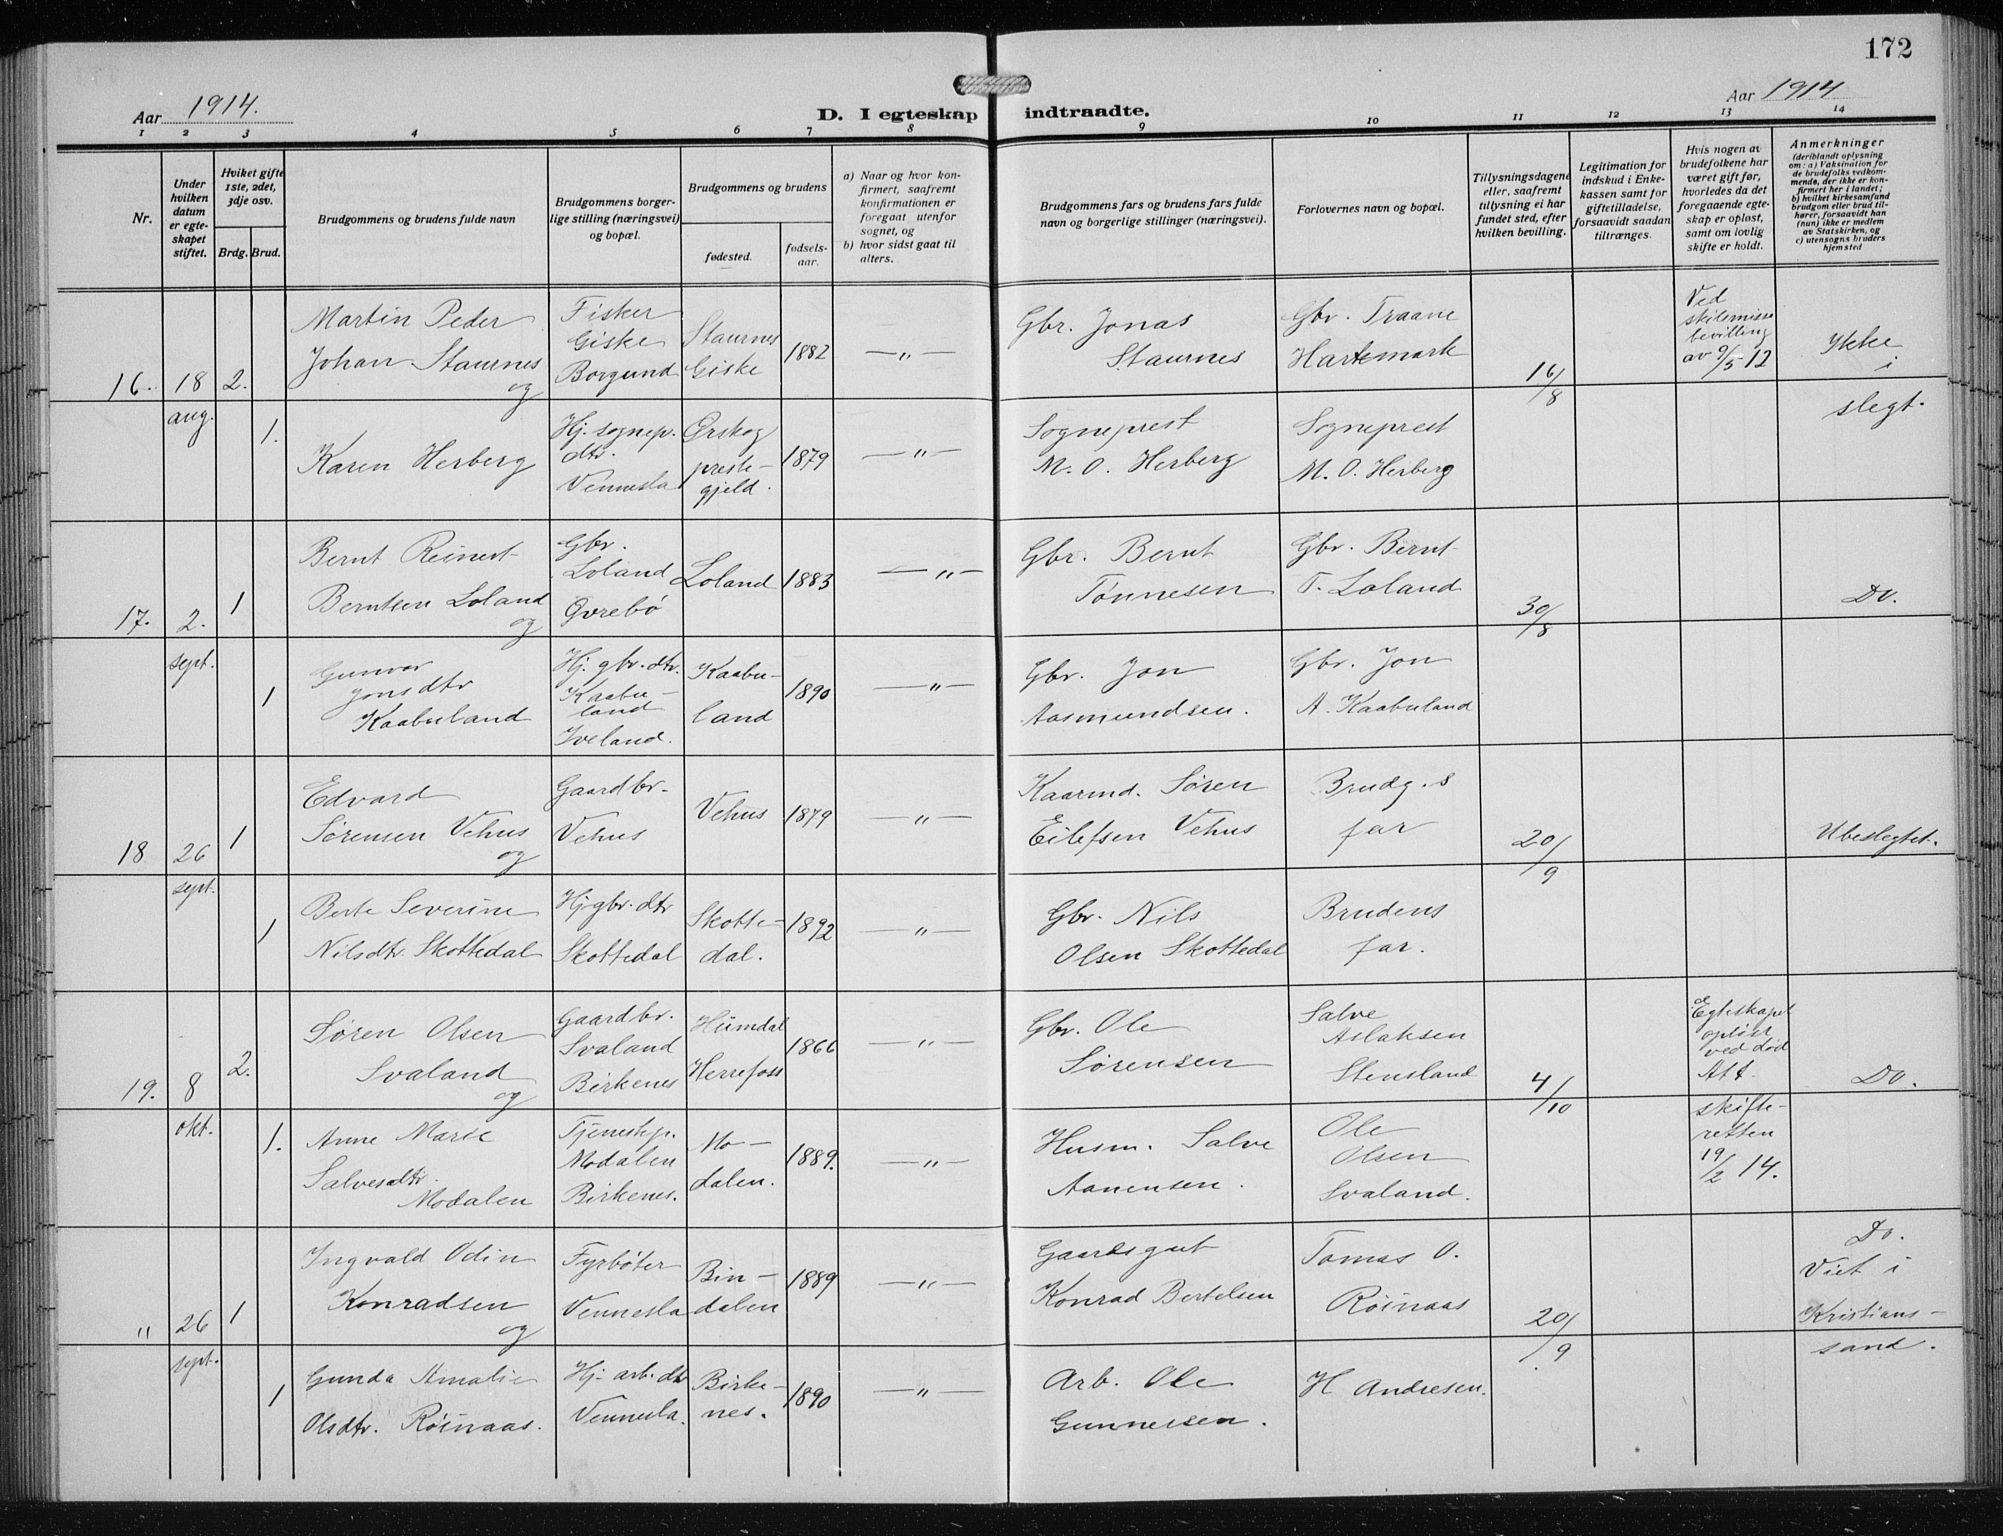 172
Aar 1914.
D. I egteskap indtraadte.
Aar 1914
1 2 3 4 5 6 7 8 9 10 11 12 13 14
Nr.
Under hvilken datum er egteskapet stiftet.
Hviket gifte 1ste, 2det, 3dje osv.
Brdg. Brud.
Brudgommens og brudens fulde navn
Brudgommens borgerlige stilling (næringsvei) og bopæl.
Brudgommens og brudens
fødested.
fødselsaar.
a) Naar og hvor konfirmert, saafremt konfirmationen er foregaat utenfor sognet, og
b) hvor sidst gaat til alters.
Brudgommens fars og brudens fars fulde navn og borgerlige stillinger (næringsvei).
Forlovernes navn og bopæl.
Tillysningsdagene eller, saafremt tillysning ei har fundet sted, efter hvilken bevilling.
Legitimation for indskud i Enkekassen samt for giftetilladelse, forsaavidt saadan tiltrænges.
Hvis nogen av brudefolkene har været gift før, hvorledes da det foregaaende egteskap er opløst, samt om lovlig skifte er holdt.
Anmerkninger
(deriblandt oplysning om: a) Vaksination for de brudefolks vedkommende, der ikke er konfirmert her i landet; b) hvilket kirkesamfund brudgom eller brud tilhører, forsaavidt han (hun) ikke er medlem av Statskirken, og c) utensogns bruders hjemsted
16. 18 aug. 2.
Martin Peder
Johan Staurnes
og
Fisker
Giske
Borgund
Staurnes
Giske
1882
—"—
Gbr. Jonas
Staurnes
Gbr. Traane
Hartemark
16/8
Ved
skilsmisse
bevilling
av 9/5 12
Ikke
i
slegt.
1.
Karen Herberg
Hj. sognep.
dtr.
Vennesla
Ørskog
preste-
gjeld.
1879
—"—
Sogneprest
M. O. Herberg
Sogneprest
M. O. Herberg
17. 2. sept. 1
Bernt Reinert
Berntsen Loland
og
Gbr.
Loland
Øvrebø
Loland
1883
—"—
Gbr. Bernt
Tønnesen
Gbr. Bernt
T. Loland
30/8
Do.
1
Gunvor
Jonsdtr
Kaabuland
Hj. gbr. dtr.
Kaabu-
land
Iveland.
Kaabu-
land
1890
—"—
Gbr. Jon
Aasmundsen.
Gbr. Jon
A. Kaabuland
18 26 sept. 1
Edvard
Sørensen Vehus
og
Gaardbr.
Vehus
Vehus
1879
—"—
Kaarmd. Søren
Eilefsen Vehus
Brudg.s
far
20/9
Ubeslegtet.
1
Berte Severine
Nilsdtr. Skottedal
Hj. gbr. dtr
Skottedal
Skotte-
dal.
1892
—"—
Gbr. Nils
Olsen Skottedal
Brudens
far.
19. 8 okt. 2.
Søren Olsen
Svaland
og
Gaardbr.
Svaland
Birkenes
Humdal
Herrefoss
1866
—"—
Gbr. Ole
Sørensen
Salve
Aslaksen
Stensland
4/10
Egteskapet
opløst
ved død
Att.
skifte-
retten
19/2 14.
Do.
1.
Anne Marie
Salvesdtr.
Modalen
Tjenestep.
Modalen
Birkenes.
Mo-
dalen.
1889.
—"—
Husm. Salve
Aanensen.
Ole
Olsen
Svaland.
" 26 sept. 1
Ingvald Odin
Konradsen
og
Fyrbøter
Vennesla
Bin-
dalen
1889
—"—
Gaardsgut
Konrad Bertelsen
Tomas O.
Røinaas
20/9
Do.
Viet i
Kristians-
sand.
1
Gunda Amalie
Olsdtr. Røinaas.
Hj. arb. dtr
Vennesla.
Birke-
nes.
1890
—"—
Arb. Ole
Gunnersen.
H Andresen.